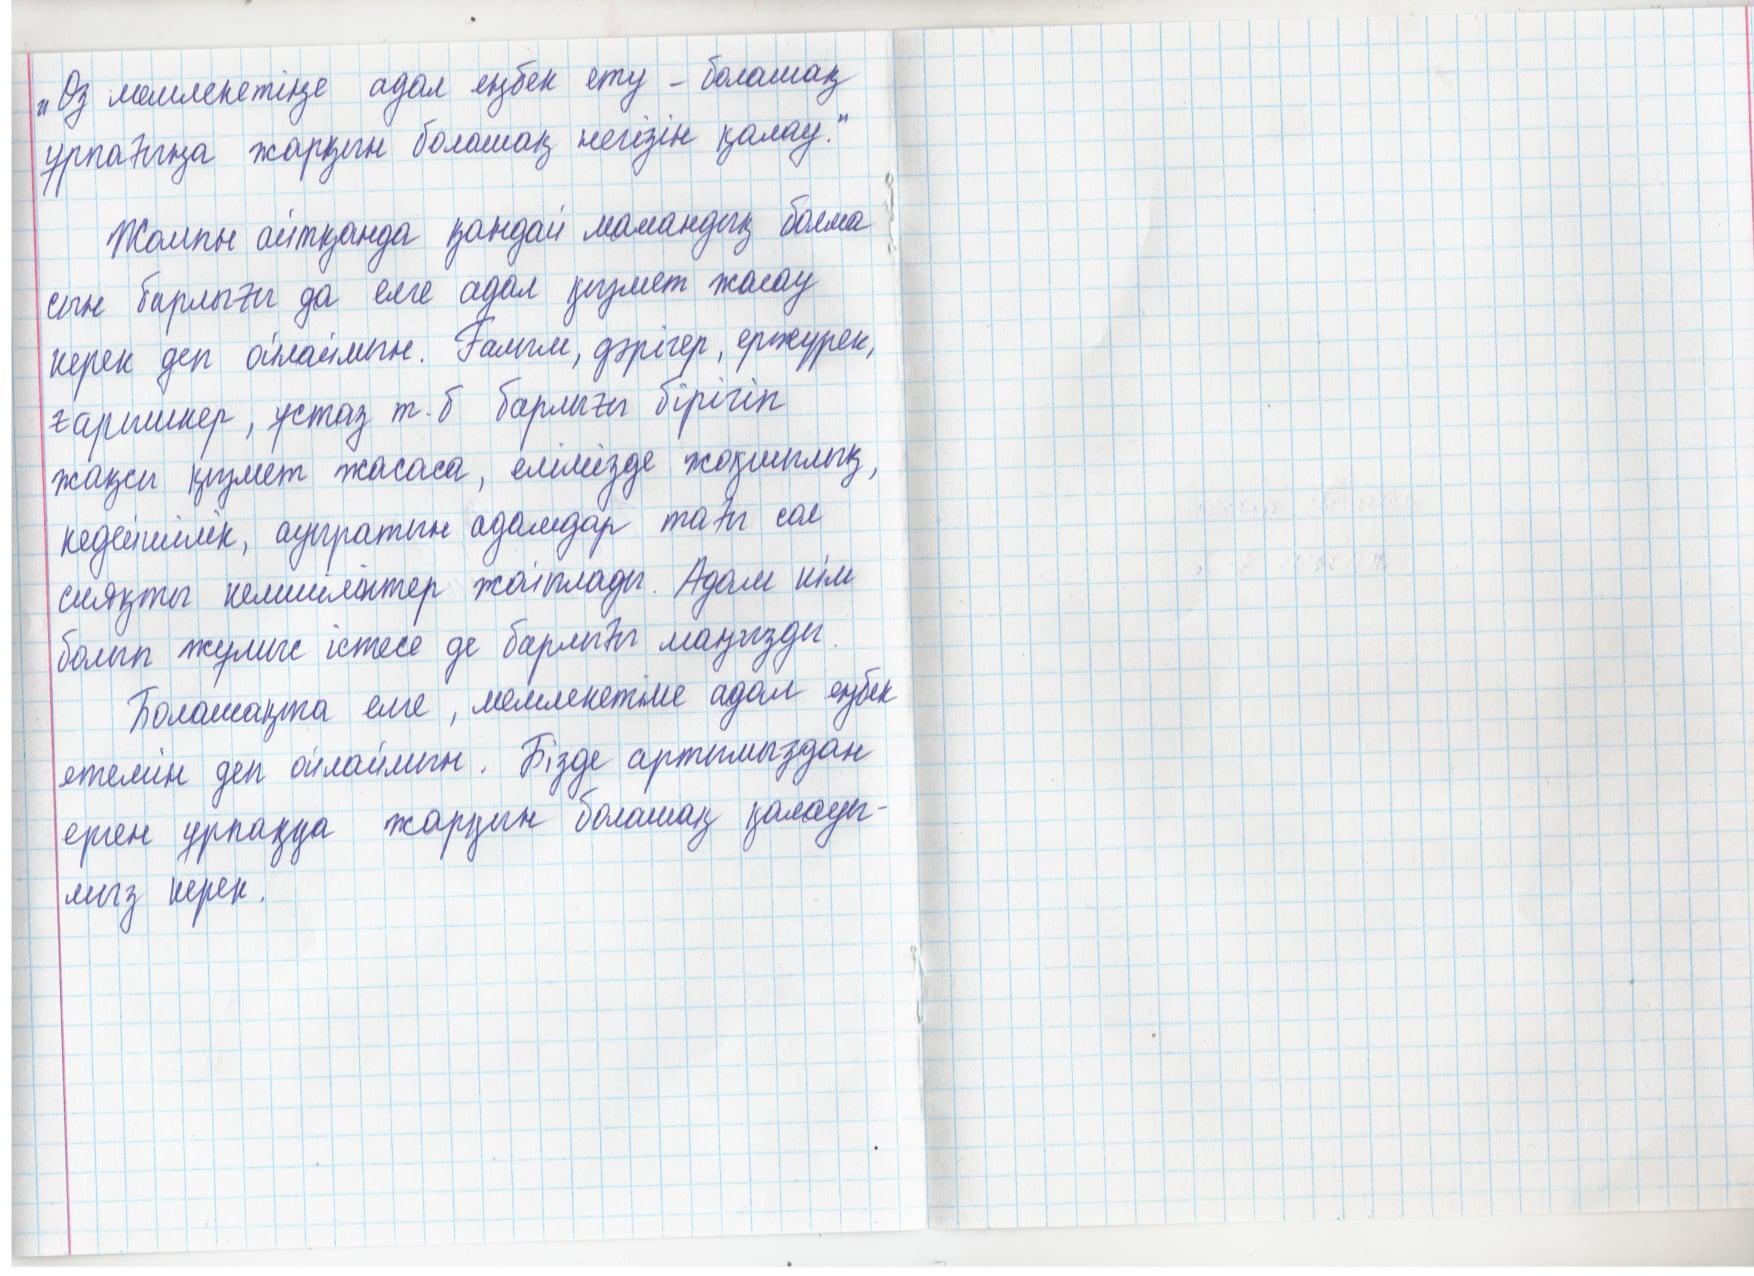 „Өз мемлекетіңе адал еңбек ету - болашақ
ұрпағыңа жарқын болашақ негізін қалау."
Жалпы айтқанда қандай мамандық болма
сын барлығы да елге адал қызмет жасау
керек деп ойлаймын. Ғалым, дәрігер, ержүрек,
ғарышкер, ұстаз т.б барлығы бірігіп
жақсы қызмет жасаса, елімізде жоқшылық,
кедейшілік, ауыратын адамдар тағы сол
сияқты кемшіліктер жойылады. Адам кім
болып жұмыс істесе де барлығы маңызды.
Болашақта елге, мемлекетіме адал еңбек
етемін деп ойлаймын. Бізде артымыздан
ерген ұрпаққа жарқын болашақ қалауы-
мыз керек.